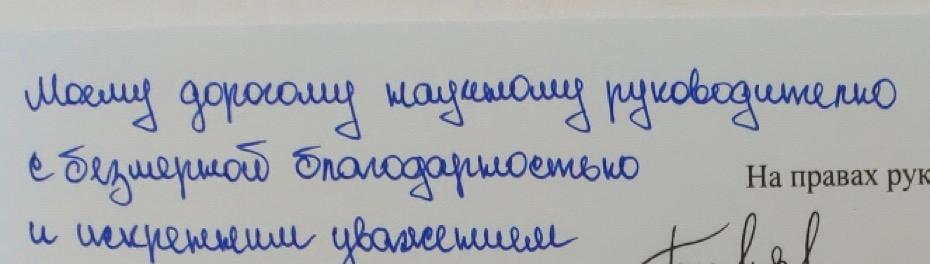 Моему дорогому научному руководителю
с безмерной благодарностью
На правах рук
и искренним уважением